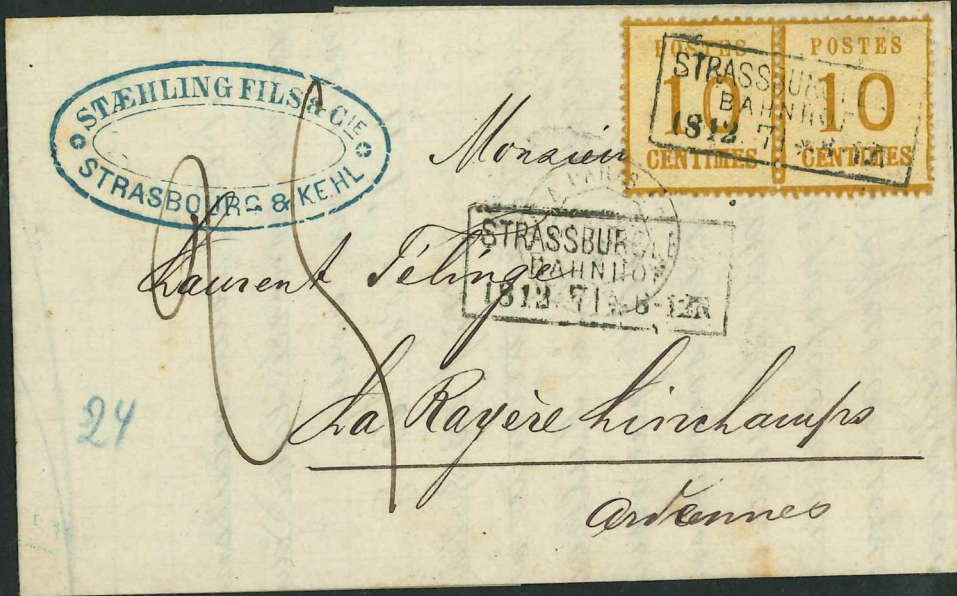 STÆHLING FILS & CIE
STRASBOURG & KEHL
POSTES
10
CENTIMES
POSTES
10
CENTIMES
STRASSBURG I. E.
BAHNHOF
18 12. 7
Monsieur
STRASSBURG I. E
BAHNHOF
18 12. 71 * 8-12N
Laurent Félinge
25
La Rayère Linchamps
Ardennes
24